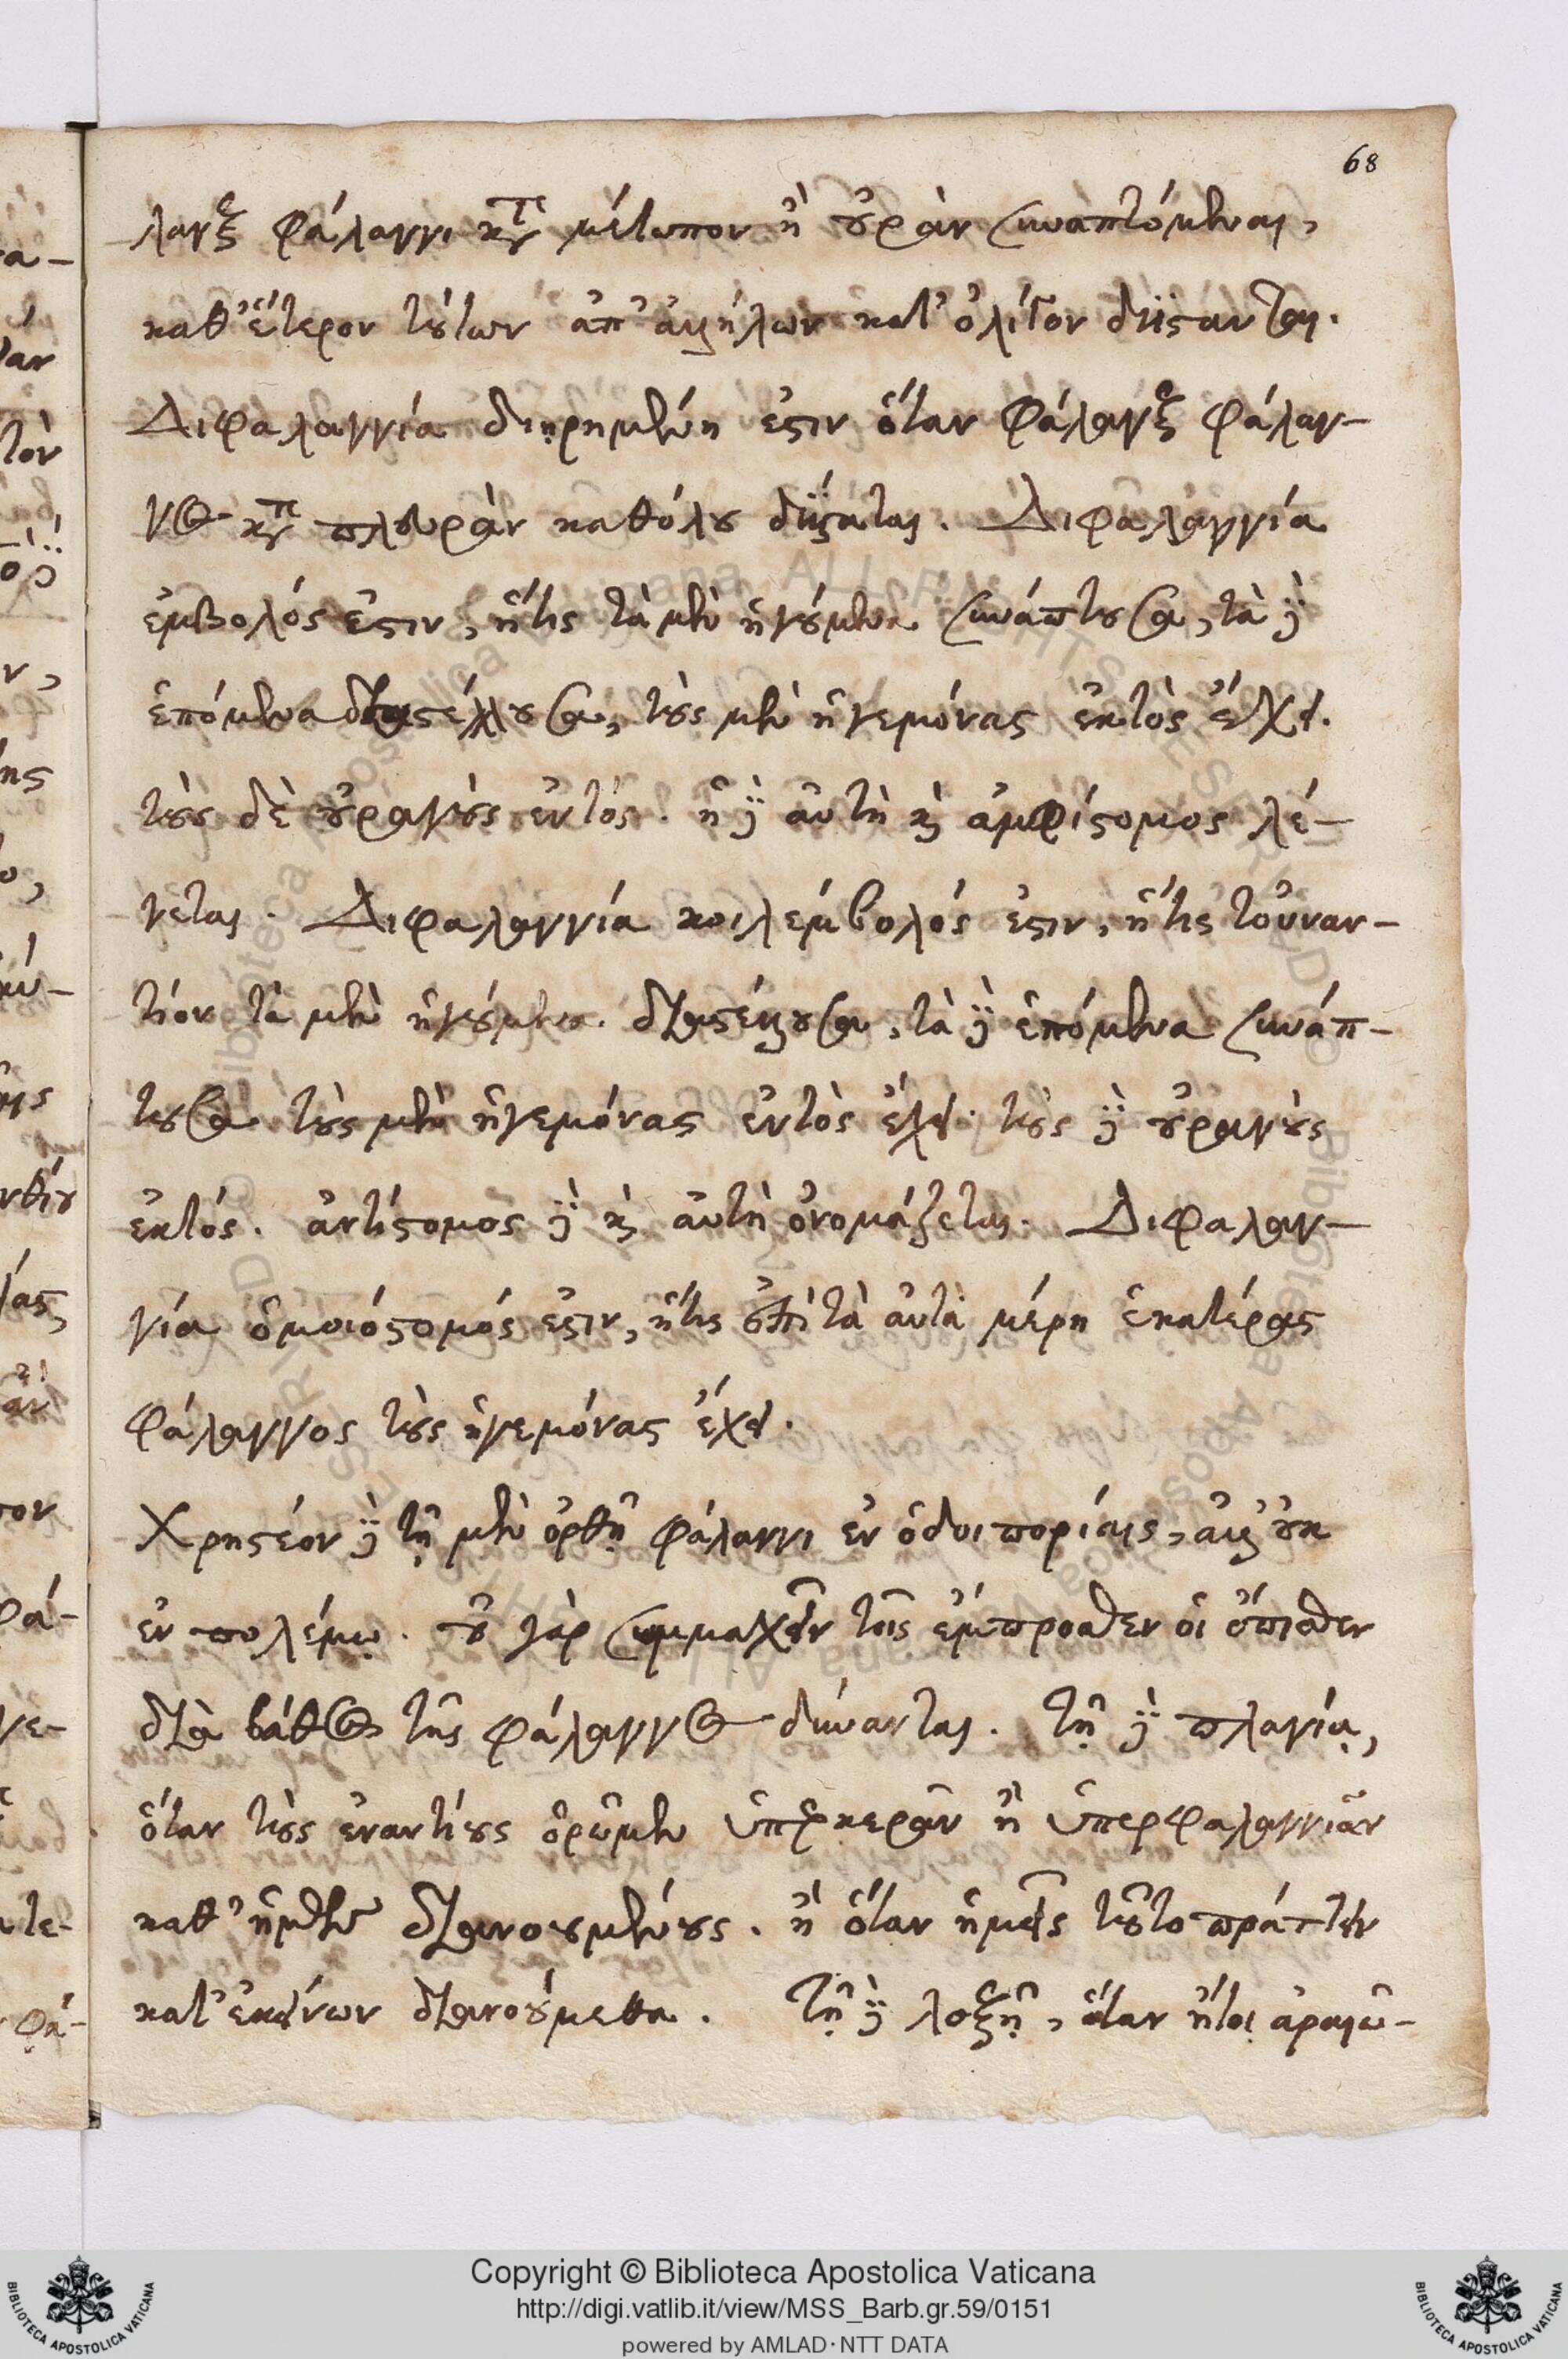 68
λαγξ φάλαγγι κατὰ μέτωπον ἢ οὐρὰν συναπτόμεναι,
καθ' ἕτερον τούτων ἀπ' ἀλλήλων κατ' ὀλίγον διίστανται.
Διφαλαγγία διῃρημένη ἐστιν ὅταν φάλαγξ φάλαγ-
γος κατὰ πλευρὰν καθόλου διίσταται. Διφαλαγγία
ἐμβολός ἐστιν, ἥτις τὰ μὲν ἡγούμενα συνάπτουσα, τὰ δὲ
ἑπόμενα διαστέλλουσα, τοὺς μὲν ἡγεμόνας ἐκτὸς ἔχει.
τοὺς δὲ οὐραγοὺς ἐντός. ἡ δὲ αὐτὴ καὶ ἀμφίστομος λέ-
γεται. Διφαλαγγία κοιλέμβολός ἐστιν, ἥτις τοὐναν-
τίον τὰ μὲν ἡγούμενα διαστέλλουσα, τὰ δὲ ἑπόμενα συνάπ-
τουσα τοὺς μὲν ἡγεμόνας ἐντὸς ἔχει. τοὺς δὲ οὐραγοὺς
ἐκτός. ἀντίστομος δὲ καὶ αὐτὴ ὀνομάζεται. Διφαλαγ-
γία ὁμοιόστομός ἐστιν, ἥτις ἐπὶ τὰ αὐτὰ μέρη ἑκατέρας
φάλαγγος τοὺς ἡγεμόνας ἔχει.
Χρηστέον δὲ τῇ μὲν ὀρθῇ φάλαγγι ἐν ὁδοιπορίαις, ἀλλ' οὐκ
ἐν πολέμῳ. οὐ γὰρ συμμαχεῖν τοῖς ἔμπροσθεν οἱ ὄπισθεν
διὰ βάθος τῆς φάλαγγος δύνανται. τῇ δὲ πλαγίᾳ,
ὅταν τοὺς ἐναντίους ὁρῶμεν ὑπερκερᾶν ἢ ὑπερφαλαγγιᾶν
καθ' ἡμῶν διανοουμένους. ἢ ὅταν ἡμεῖς τοῦτο πράττειν
κατ' ἐκείνων διανοούμεθα. Τῇ δὲ λοξῇ, ὅταν ἤτοι ἀραιῶ-
Copyright © Biblioteca Apostolica Vaticana
http://digi.vatlib.it/view/MSS_Barb.gr.59/0151
powered by AMLAD·NTT DATA